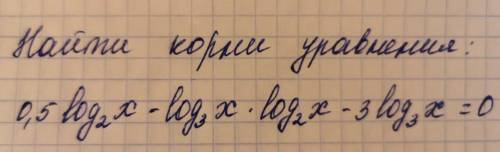 Найти корни уравнения:
0,5log₂x - log₃x · log₂x - 3log₃x = 0